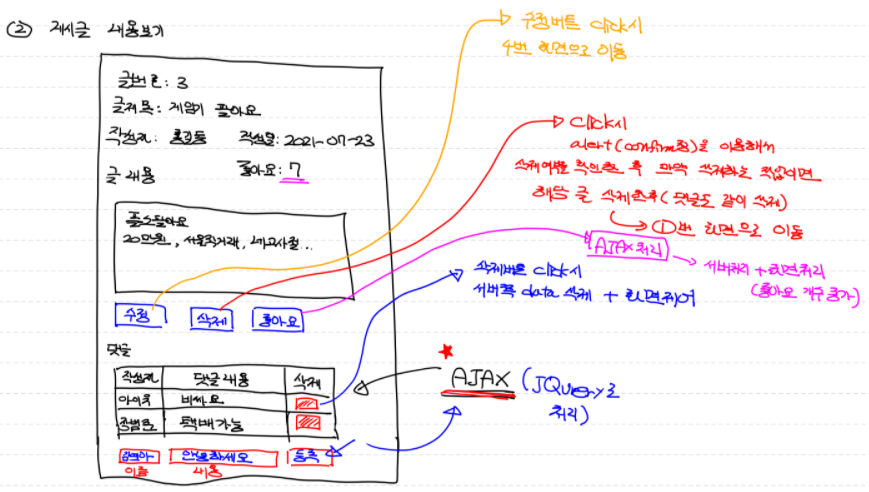 ② 게시글 내용보기
글번호: 3
글제목: 게임기 팔아요
작성자: 홍길동 작성일: 2021-07-23
글 내용 좋아요: 7
플스팔아요
20만원, 서울직거래, 네고사절...
수정 삭제 좋아요
댓글
작성자 댓글내용 삭제
아이유 비싸요
택배가능
안녕하세요 등록
이름 내용
수정버튼 click시
4번 화면으로 이동
click시
alert(confirm창)을 이용해서
삭제여부를 확인한 후 만약 삭제하는 작업이면
해당 글 삭제한후(댓글도 같이 삭제)
①번 화면으로 이동
AJAX처리
서버처리 + 화면처리
(좋아요 개수 증가)
삭제버튼 click시
서버쪽 data 삭제 + 화면제어
AJAX (JQuery로
처리)